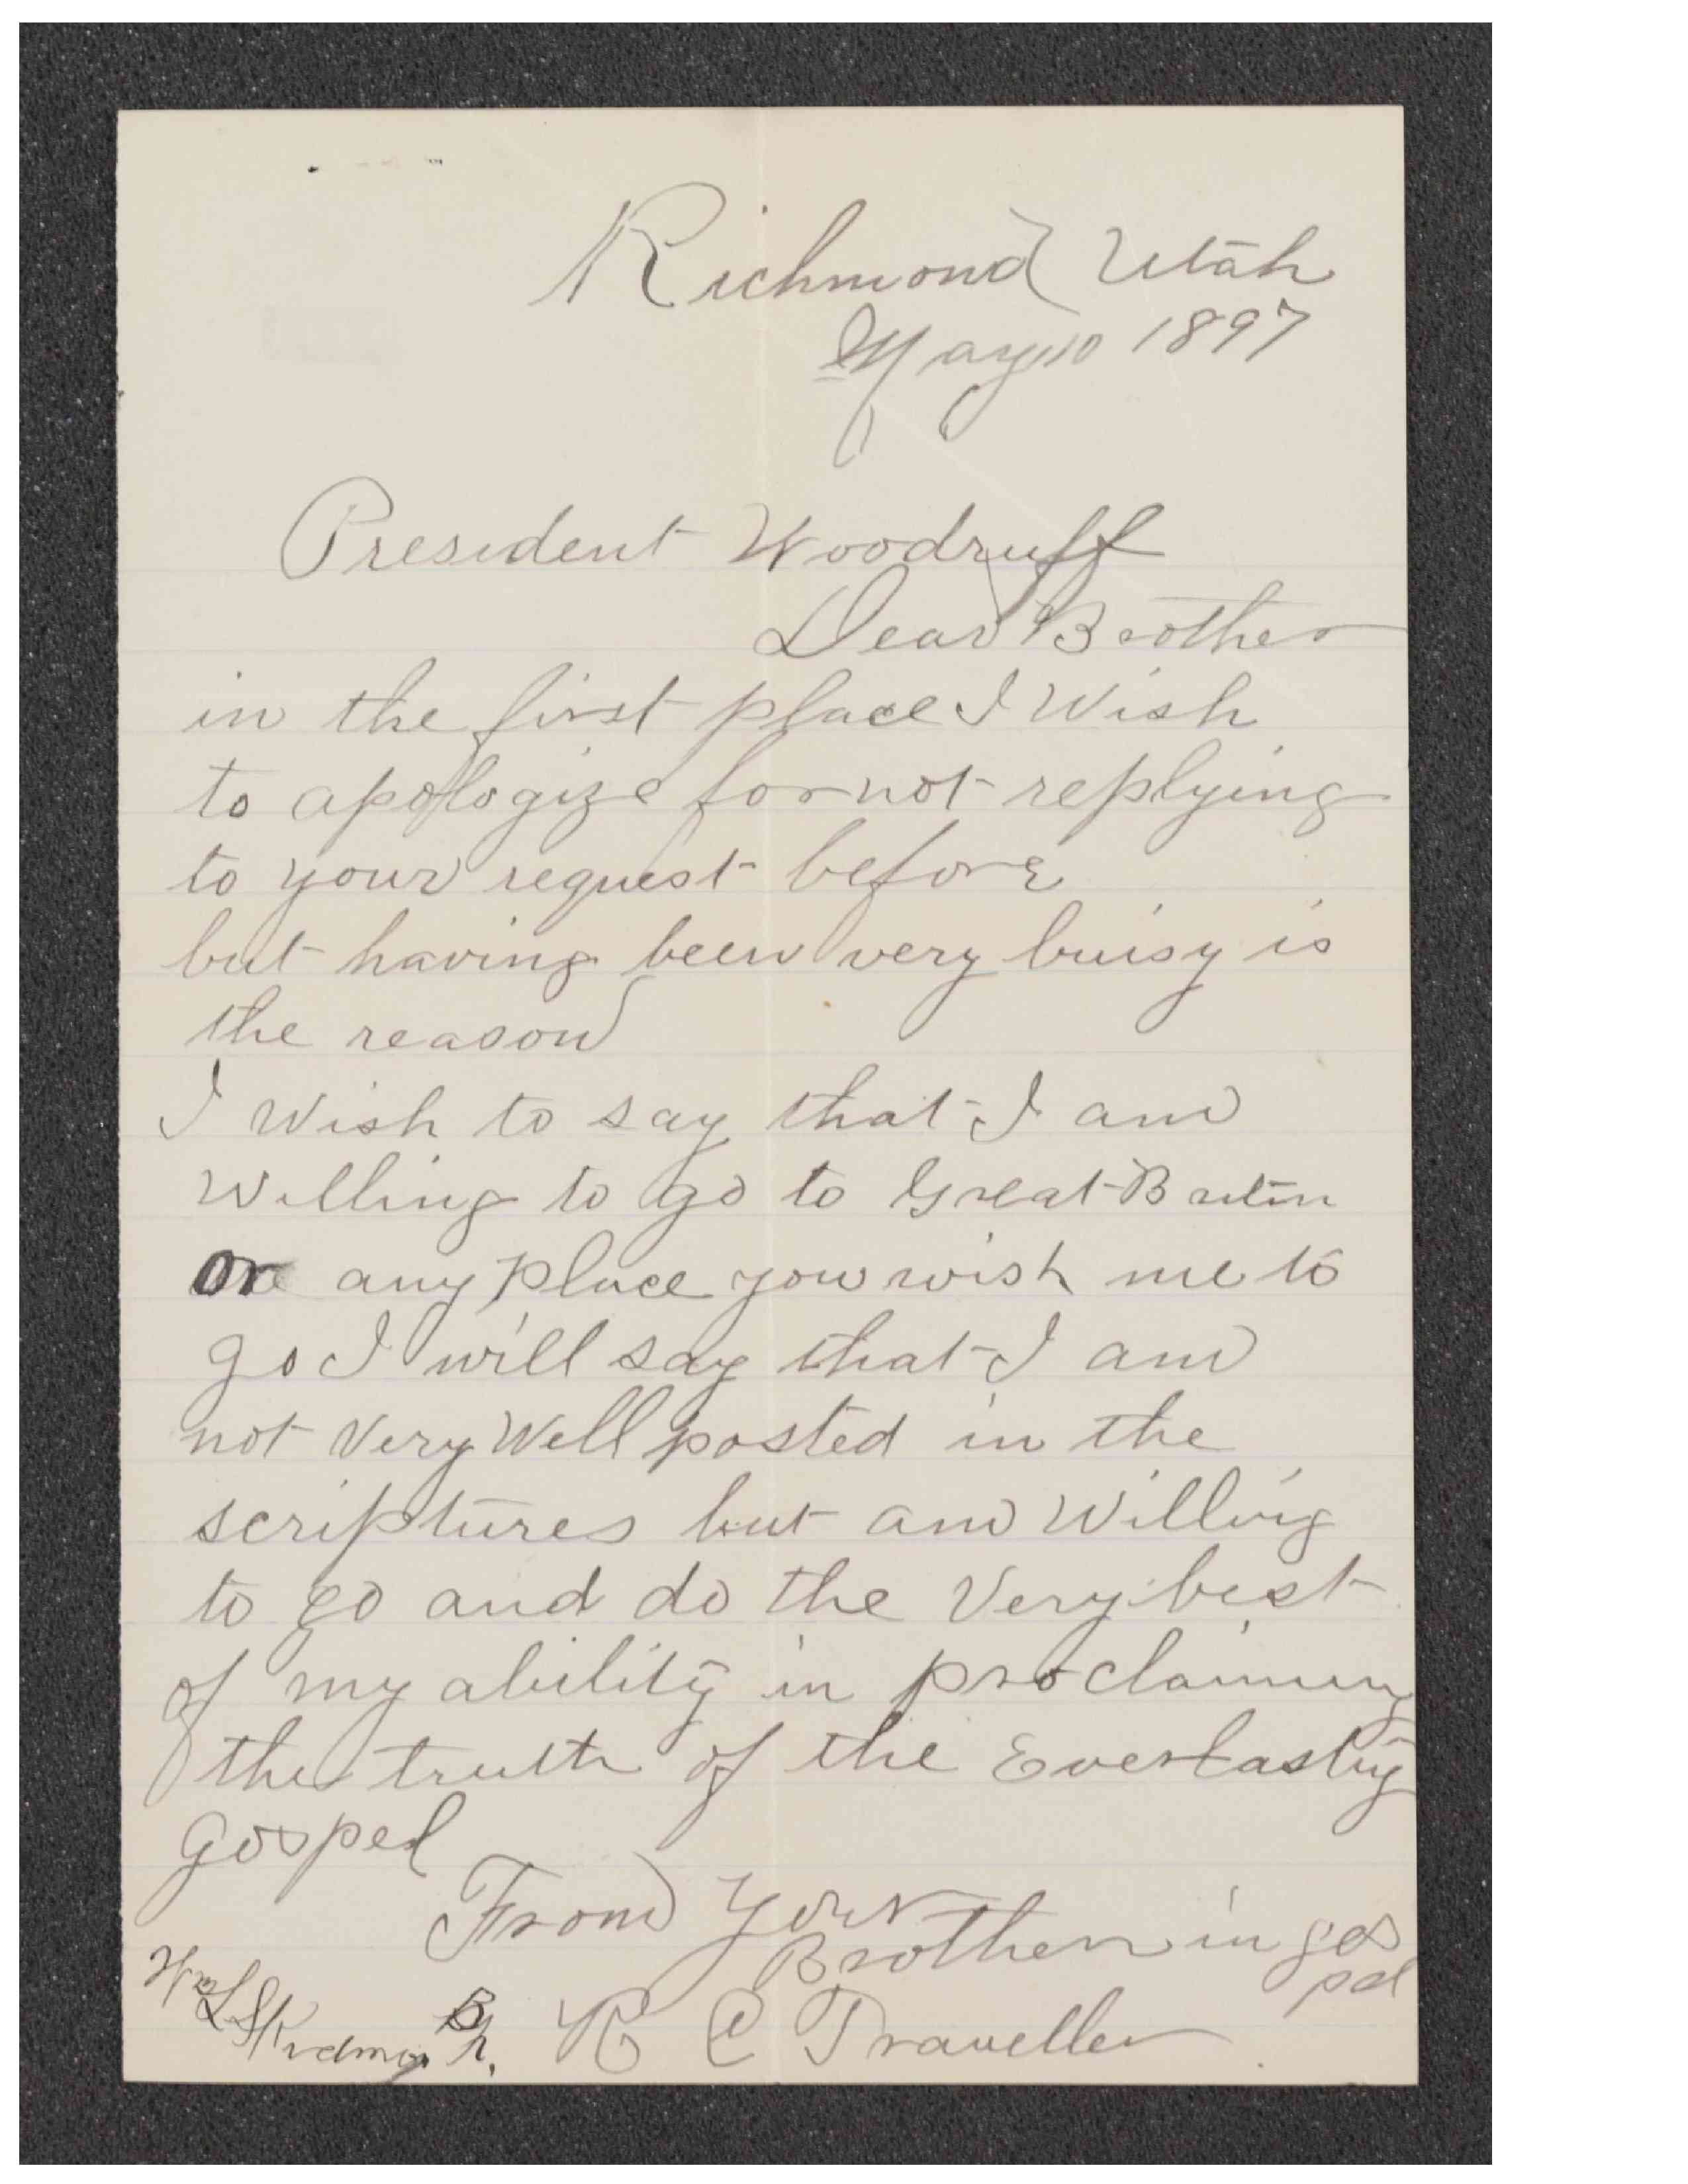 Richmond Utah
May 10 1897
President Woodruff
Dear Brother
in the first place I Wish
to apologize for not replying
to your request before
but having been very buisy is
the reason
I Wish to say that I am
Willing to go to Great Britin
or any place you wish me to
go I will say that I am
not Very Well posted in the
scriptures but am Willing
to go and do the Very best
of my ability in proclaiming
the truth of the Everlasting
gospel
From Your
Brother in gos
pel
H C Traveller
Wm L Skidmore
Bp.